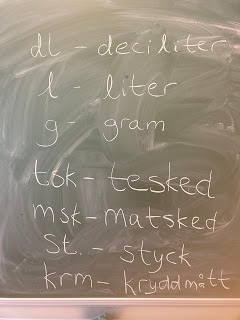 dl - deciliter
l - liter
g - gram
tsk - tesked
msk - Matsked
St. - styck
krm - kryddmått